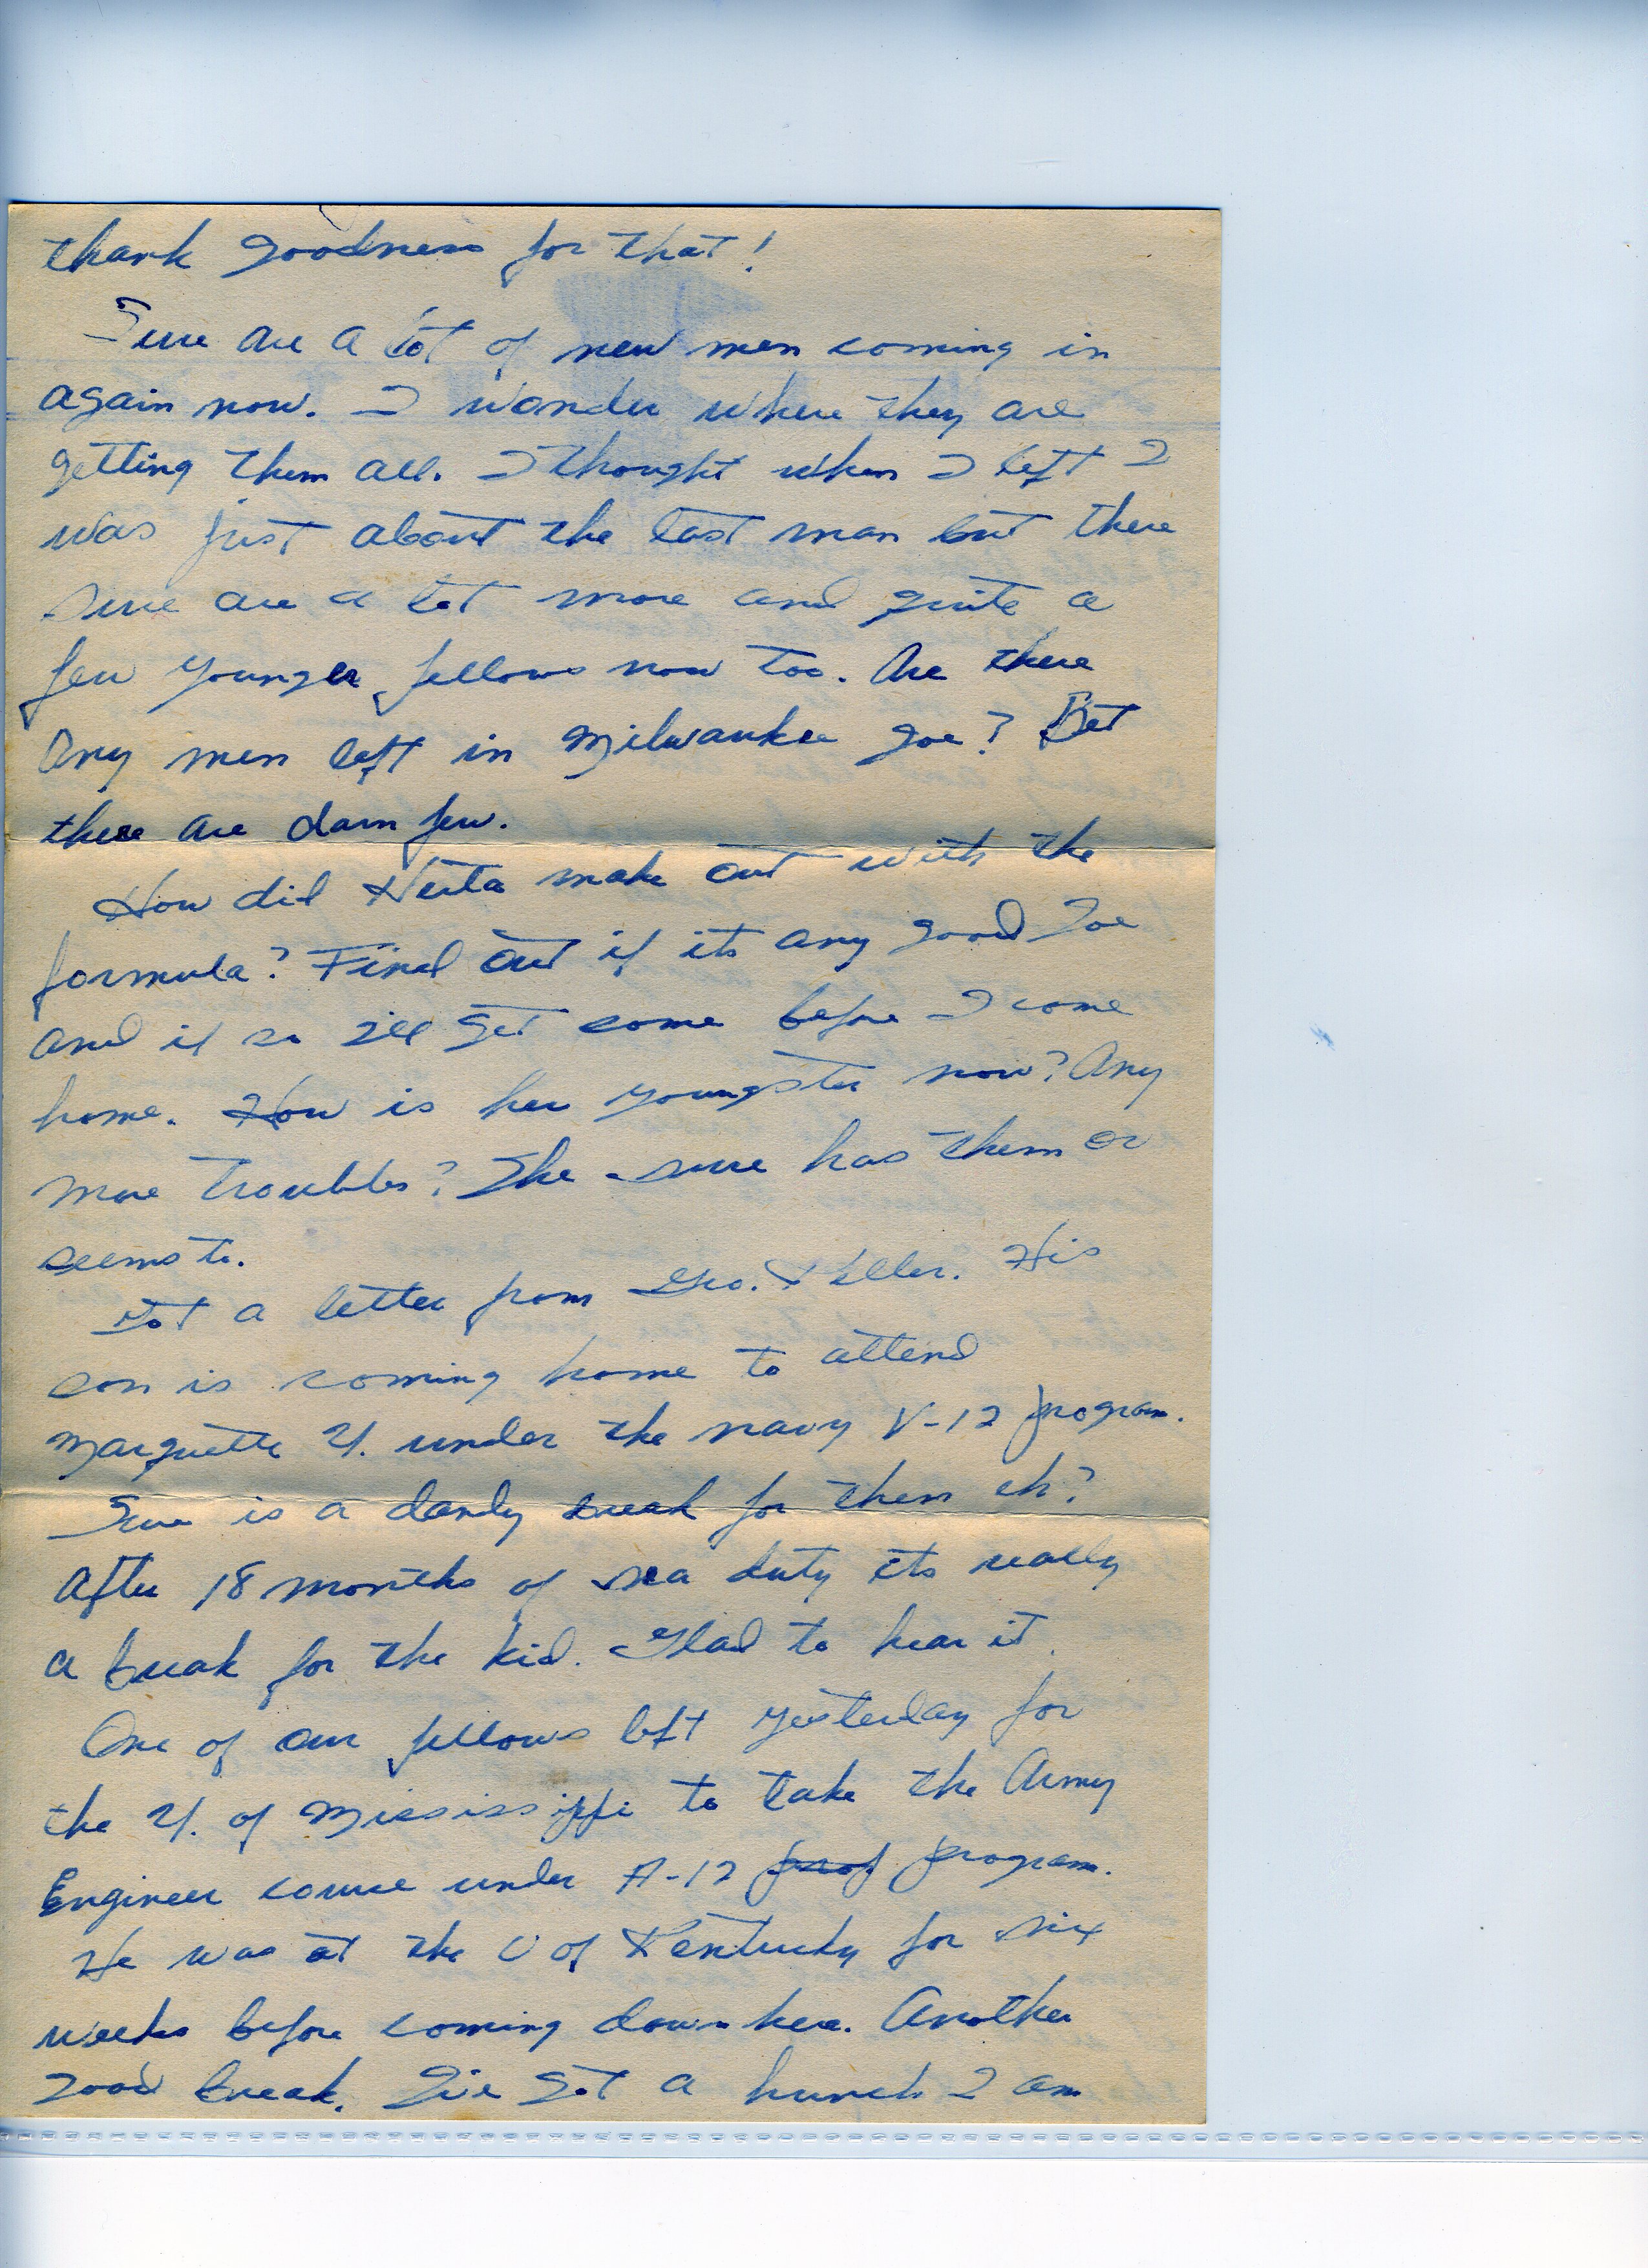 thank goodness for that!
Sure are a lot of new men coming in
again now. I wonder where they are
getting them all. I thought when I left I
was just about the last man but there
sure are a lot more and quite a
few younger fellows now too. Are there
any men left in Milwaukee Joe? Bet
there are darn few.
How did Herta make out with the
formula? Find out if its any good Joe
and if so I'll get some before I come
home. How is her youngster now? Any
more troubles? She sure has them or
seems to.
Got a letter from Geo. His
son is coming home to attend
Marquette U. under the navy V-12 program.
Sure is a dandy break for them eh?
After 18 months of sea duty its really
a break for the kid. Glad to hear it.
One of our fellows left yesterday for
the U. of Mississippi to take the Army
Engineer course under A-12 prog program.
He was at the U of Kentucky for six
weeks before coming down here. Another
good break. I've got a hunch I am